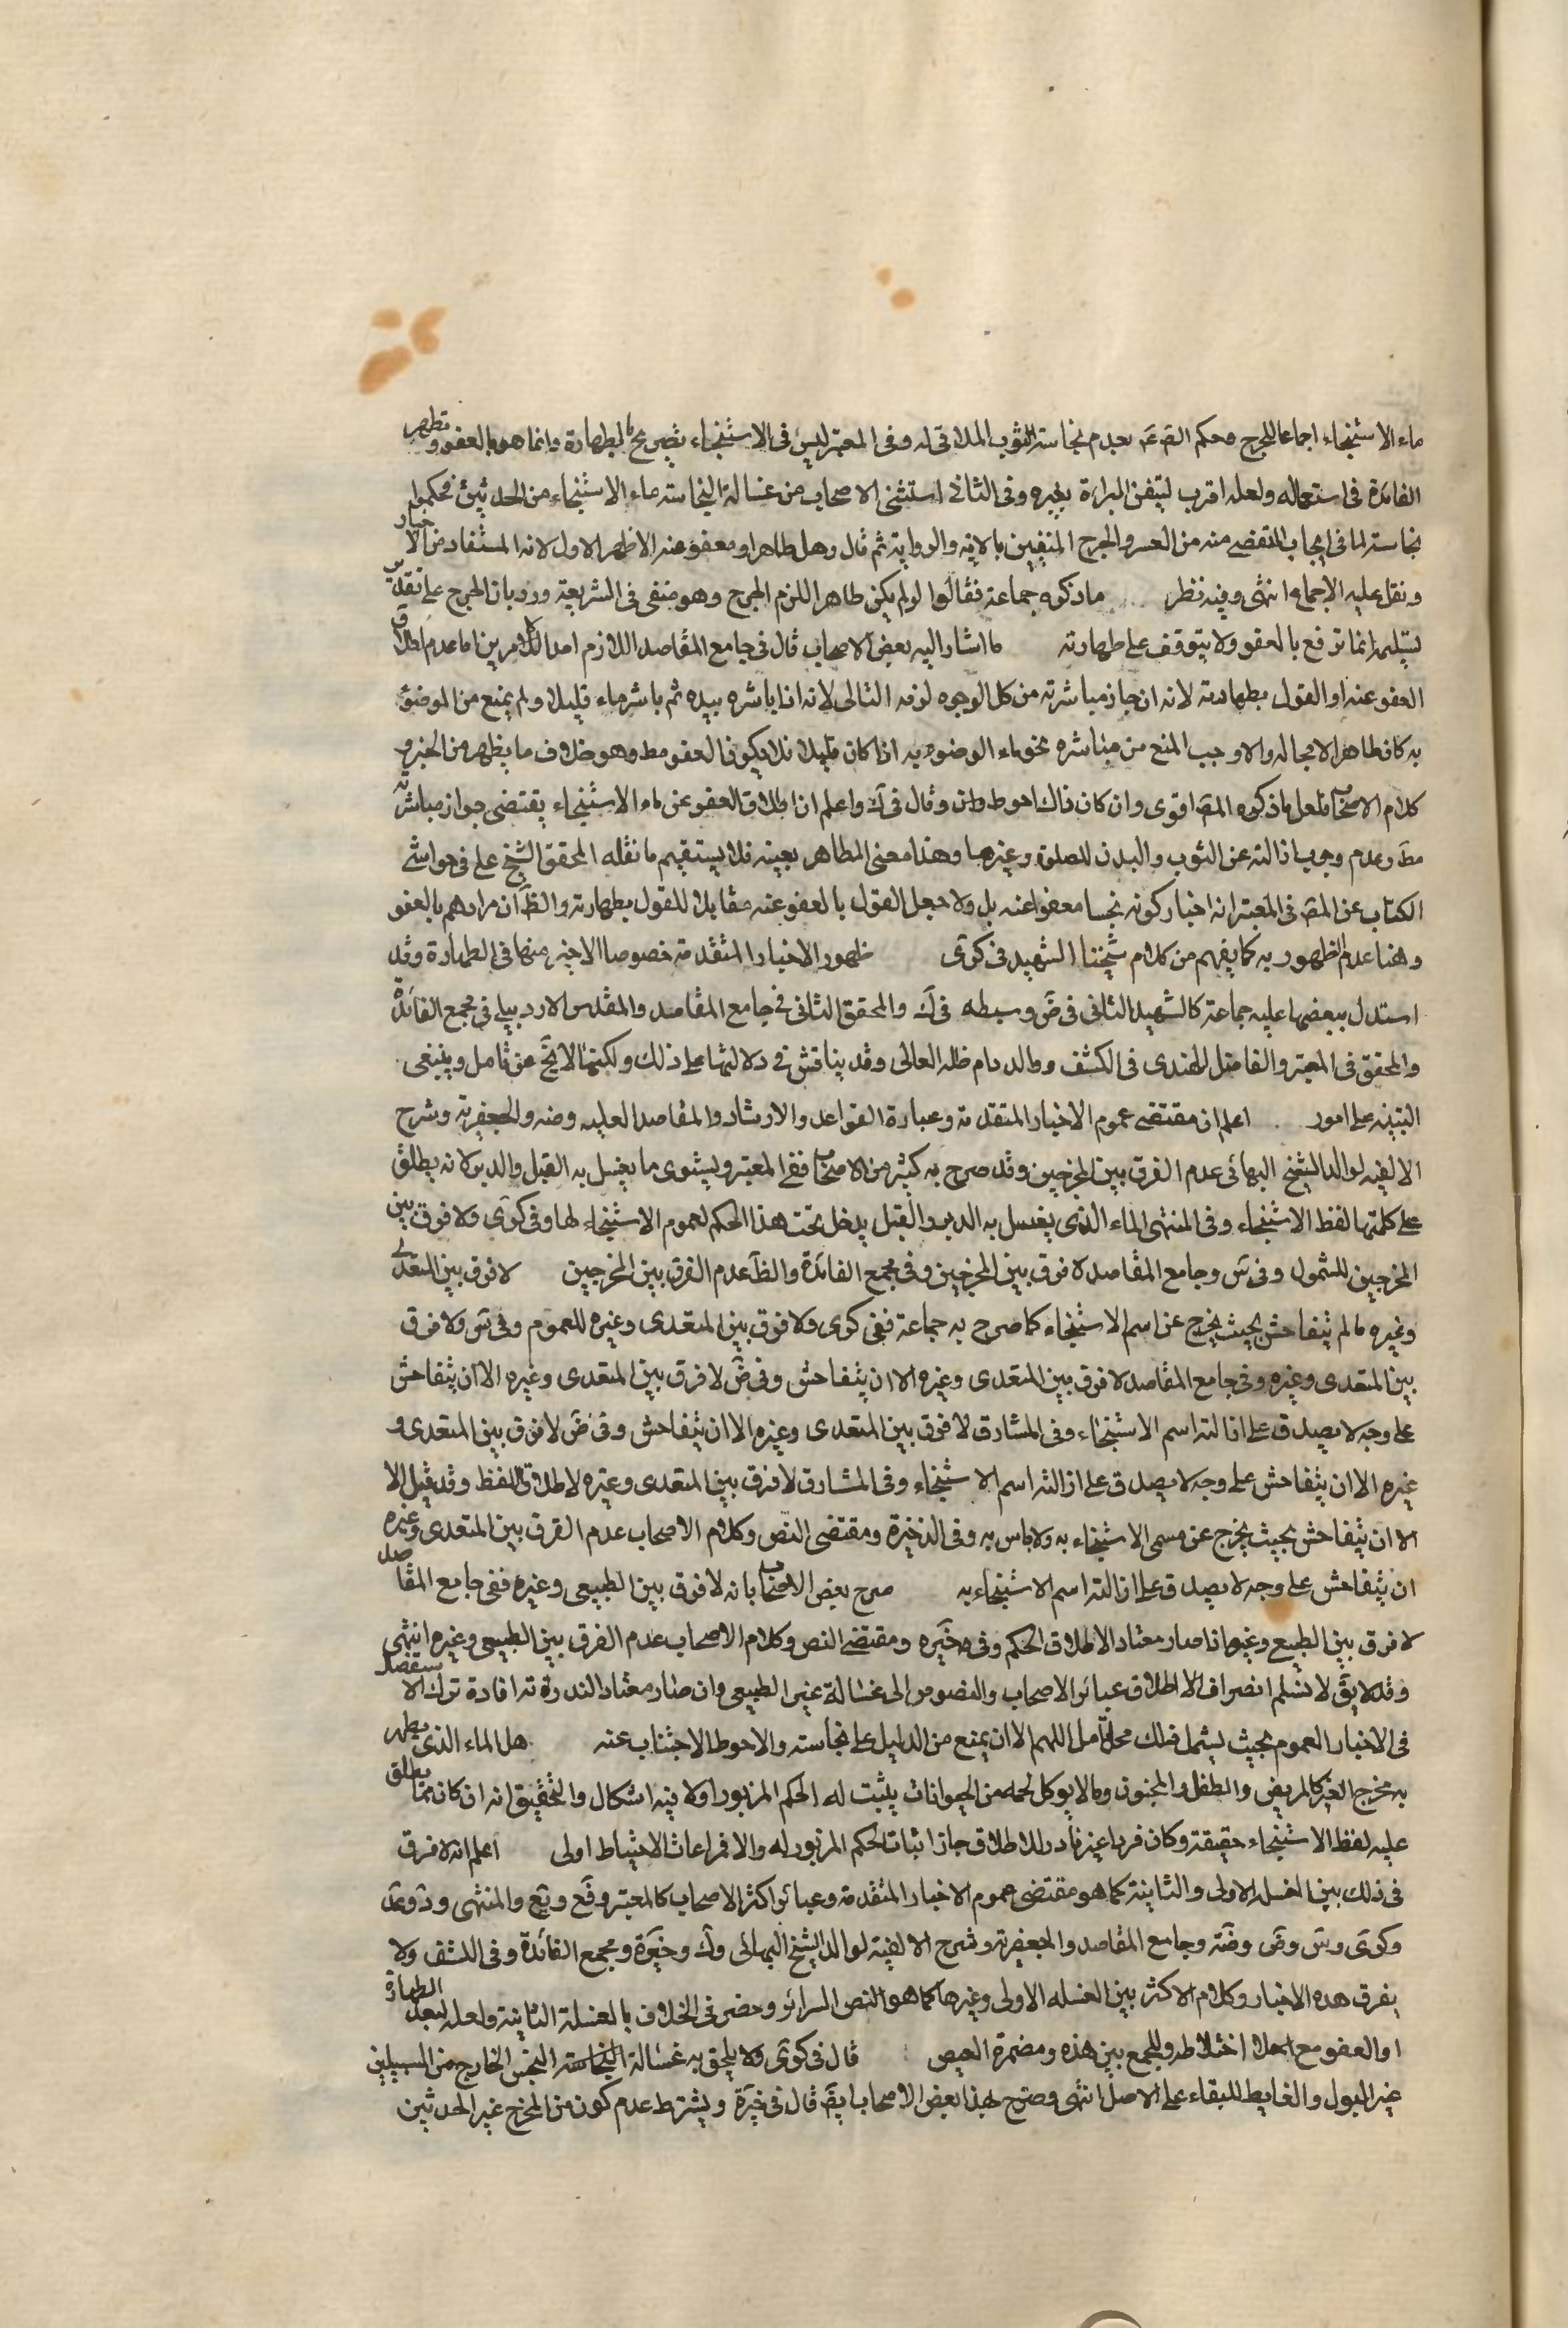 ماء الاستنجاء اجماعا للحرج وحكم الصّ عَ بعدم نجاسة الثوب الملاقى له وفى المعتبر ليس فى الاستنجاء تصريح بالطهارة وانما هو بالعفو وتظهر
الفائدة فى استعماله ولعله اقرب لتيقن البراءة بغيره وفى الثانى استثنى الاصحاب من غسالة النجاسة ماء الاستنجاء من الحدثين فحكموا
نجاسته لما فى ايجاب التقضى منه من العسر والحرج المنفيين بالاية والرواية ثم قال وهل طاهر او معفو عنه الاظهر الاول لانه المستفاد من الاخبار
ونقل عليه الاجماع انتهى وفيه نظر ما ذكره جماعة فقالوا لو لم يكن طاهرا للزم الحرج وهو منفى فى الشريعة ورد بان الحرج على تقدير
تسليمه انما ترفع بالعفو ولا يتوقف على طهارته ما اشار اليه بعض الاصحاب قال فى جامع المقاصد اللازم احد الامرين اما عدم اطلاق
العفو عنه او القول بطهارته لانه ان جاز مباشرته من كل الوجوه لزمه الثانى لانه اذا باشره بيده ثم باشر ماء قليلا ولم يمنع من الوضوء
به كان طاهرا لا محالة والا وجب المنع من مباشره نحو ماء الوضوء به اذا كان قليلا فلا يكون العفو مط وهو خلاف ما يظهر من الخبر و
كلام الاصحاب فلعل ما ذكره المصَ اقوى وان كان ذاك احوط وقال فى ك واعلم ان اطلاق العفو عن ماء الاستنجاء يقتضى جواز مباشرته
مط وعدم وجوب ازالته عن الثوب والبدن للصلوة وغيرها وهذا معنى الطاهر بعينه فلا يستقيم ما نقله المحقق الشيخ على فى حواشى
الكتاب عن المصَ فى المعتبر انه اختار كونه نجسا معفوا عنه بل ولا جعل القول بالعفو عنه مقابلا للقول بطهارته والظَ ان مرادهم بالعفو
وهنا عدم الظهور به كما يفهم من كلام شيخنا الشهيد فى كرى ظهور الاخبار المتقدمة خصوصا الاخير منها فى الطهارة وقد
استدل ببعضها عليه جماعة كالشهيد الثانى فى ضَ وسبطه فى ك والمحقق الثانى فى جامع المقاصد والمقدس الاردبيلى فى مجمع الفائدة
والمحقق فى المعتبر والفاضل الهندى فى الكشف ووالد دام ظله العالى وقد يناقش فى دلالتها على ذلك ولكنها لا يخ عن تامل وينبغى
التنبيه على امور اعلم ان مقتضى عموم الاخبار المتقدمة وعبارة القواعد والارشاد والمقاصد العلية وضه والجعفرية وشرح
الالفية لوالد الشيخ البهائى عدم الفرق بين المخرجين وقد صرح به كثير من الاصحاب ففى المعتبر ويستوى ما يغسل به القبل والدبر لانه يطلق
على كلتيهما لفظ الاستنجاء وفى المنتهى الماء الذى يغسل به الدبر والقبل يدخل تحت هذا الحكم لعموم الاستنجاء لها وفى كرى ولا فرق بين
المخرجين للشمول وفى سَ وجامع المقاصد لا فرق بين المخرجين وفى مجمع الفائدة والظَ عدم الفرق بين المخرجين لا فرق بين المتعدى
وغيره ما لم يتفاحش بحيث يخرج عن اسم الاستنجاء كما صرح به جماعة ففى كرى ولا فرق بين المتعدى وغيره للعموم وفى سَ ولا فرق
بين المتعدى وغيره وفى جامع المقاصد لا فرق بين المتعدى وغيره الا ان يتفاحش وفى ضَ لا فرق بين المتعدى وغيره الا ان يتفاحش
على وجه لا يصدق على ازالته اسم الاستنجاء وفى المشارق لا فرق بين المتعدى وغيره الا ان يتفاحش وفى ضَ لا فرق بين المتعدى و
غيره الا ان يتفاحش على وجه لا يصدق على ازالته اسم الاستنجاء وفى المشارق لا فرق بين المتعدى وغيره لاطلاق اللفظ وقد قيل الا
الا ان يتفاحش بحيث يخرج عن مسمى الاستنجاء به ولا باس به وفى الذخيرة ومقتضى النص وكلام الاصحاب عدم الفرق بين المتعدى وغيره
ان يتفاحش على وجه لا يصدق على ازالته اسم الاستنجاء به صرح بعض الاصحاب بانه لا فرق بين الطبيعى وغيره ففى جامع المقاصد
لا فرق بين الطبيعى وغيره اذا صار معتادا لاطلاق الحكم وفى خيره ومقتضى النص وكلام الاصحاب عدم الفرق بين الطبيعى وغيره انتهى
وقد يق لا نسلم انصراف الاطلاق عبائر الاصحاب والنصوص الى غسالة غير الطبيعى وان صار معتادا لندرته افادة ترك الاستفصال
فى الاخبار العموم بحيث يشمل ذلك محل تامل اللهم الا ان يمنع من الدليل على نجاسته والاحوط الاجتناب عنه هل الماء الذى يطهر
به مخرج الغير كالمريض والطفل والمجنون وما لا يوكل لحمه من الحيوانات يثبت له الحكم المزبور او لا فيه اشكال والتحقيق انه ان كان مما يطلق
عليه لفظ الاستنجاء حقيقة وكان فردا غير نادر للاطلاق جاز اثبات الحكم المزبور له والا فمراعات الاحتياط اولى اعلم انه لا فرق
فى ذلك بين الغسلة الاولى والثانية كما هو مقتضى عموم الاخبار المتقدمة وعبائر اكثر الاصحاب كالمعتبر وفَع ويَع والمنتهى ود وعَد
وكرى وسَ وضَ وضَه وجامع المقاصد والجعفرية وشرح الالفية لوالد الشيخ البهائى وك وخيرة ومجمع الفائدة وفى الكشف ولا
يفرق هذه الاخبار وكلام الاكثر بين الغسلة الاولى وغيرها كما هو النص السرائر وخص فى الخلاف بالغسلة الثانية ولعله لبعد الطهارة
او العفو مع اختلاطه وللجمع بين هذه ومضمرة العيص قال فى كرى ولا يلحق به غسالة النجاسة النجس الخارج من السبيلين
غير البول والغايط للبقاء على الاصل انتهى وصرح بهذا بعض الاصحاب ايضَ قال فى خيرة ويشترط عدم كون من المخرج غير الحدثين